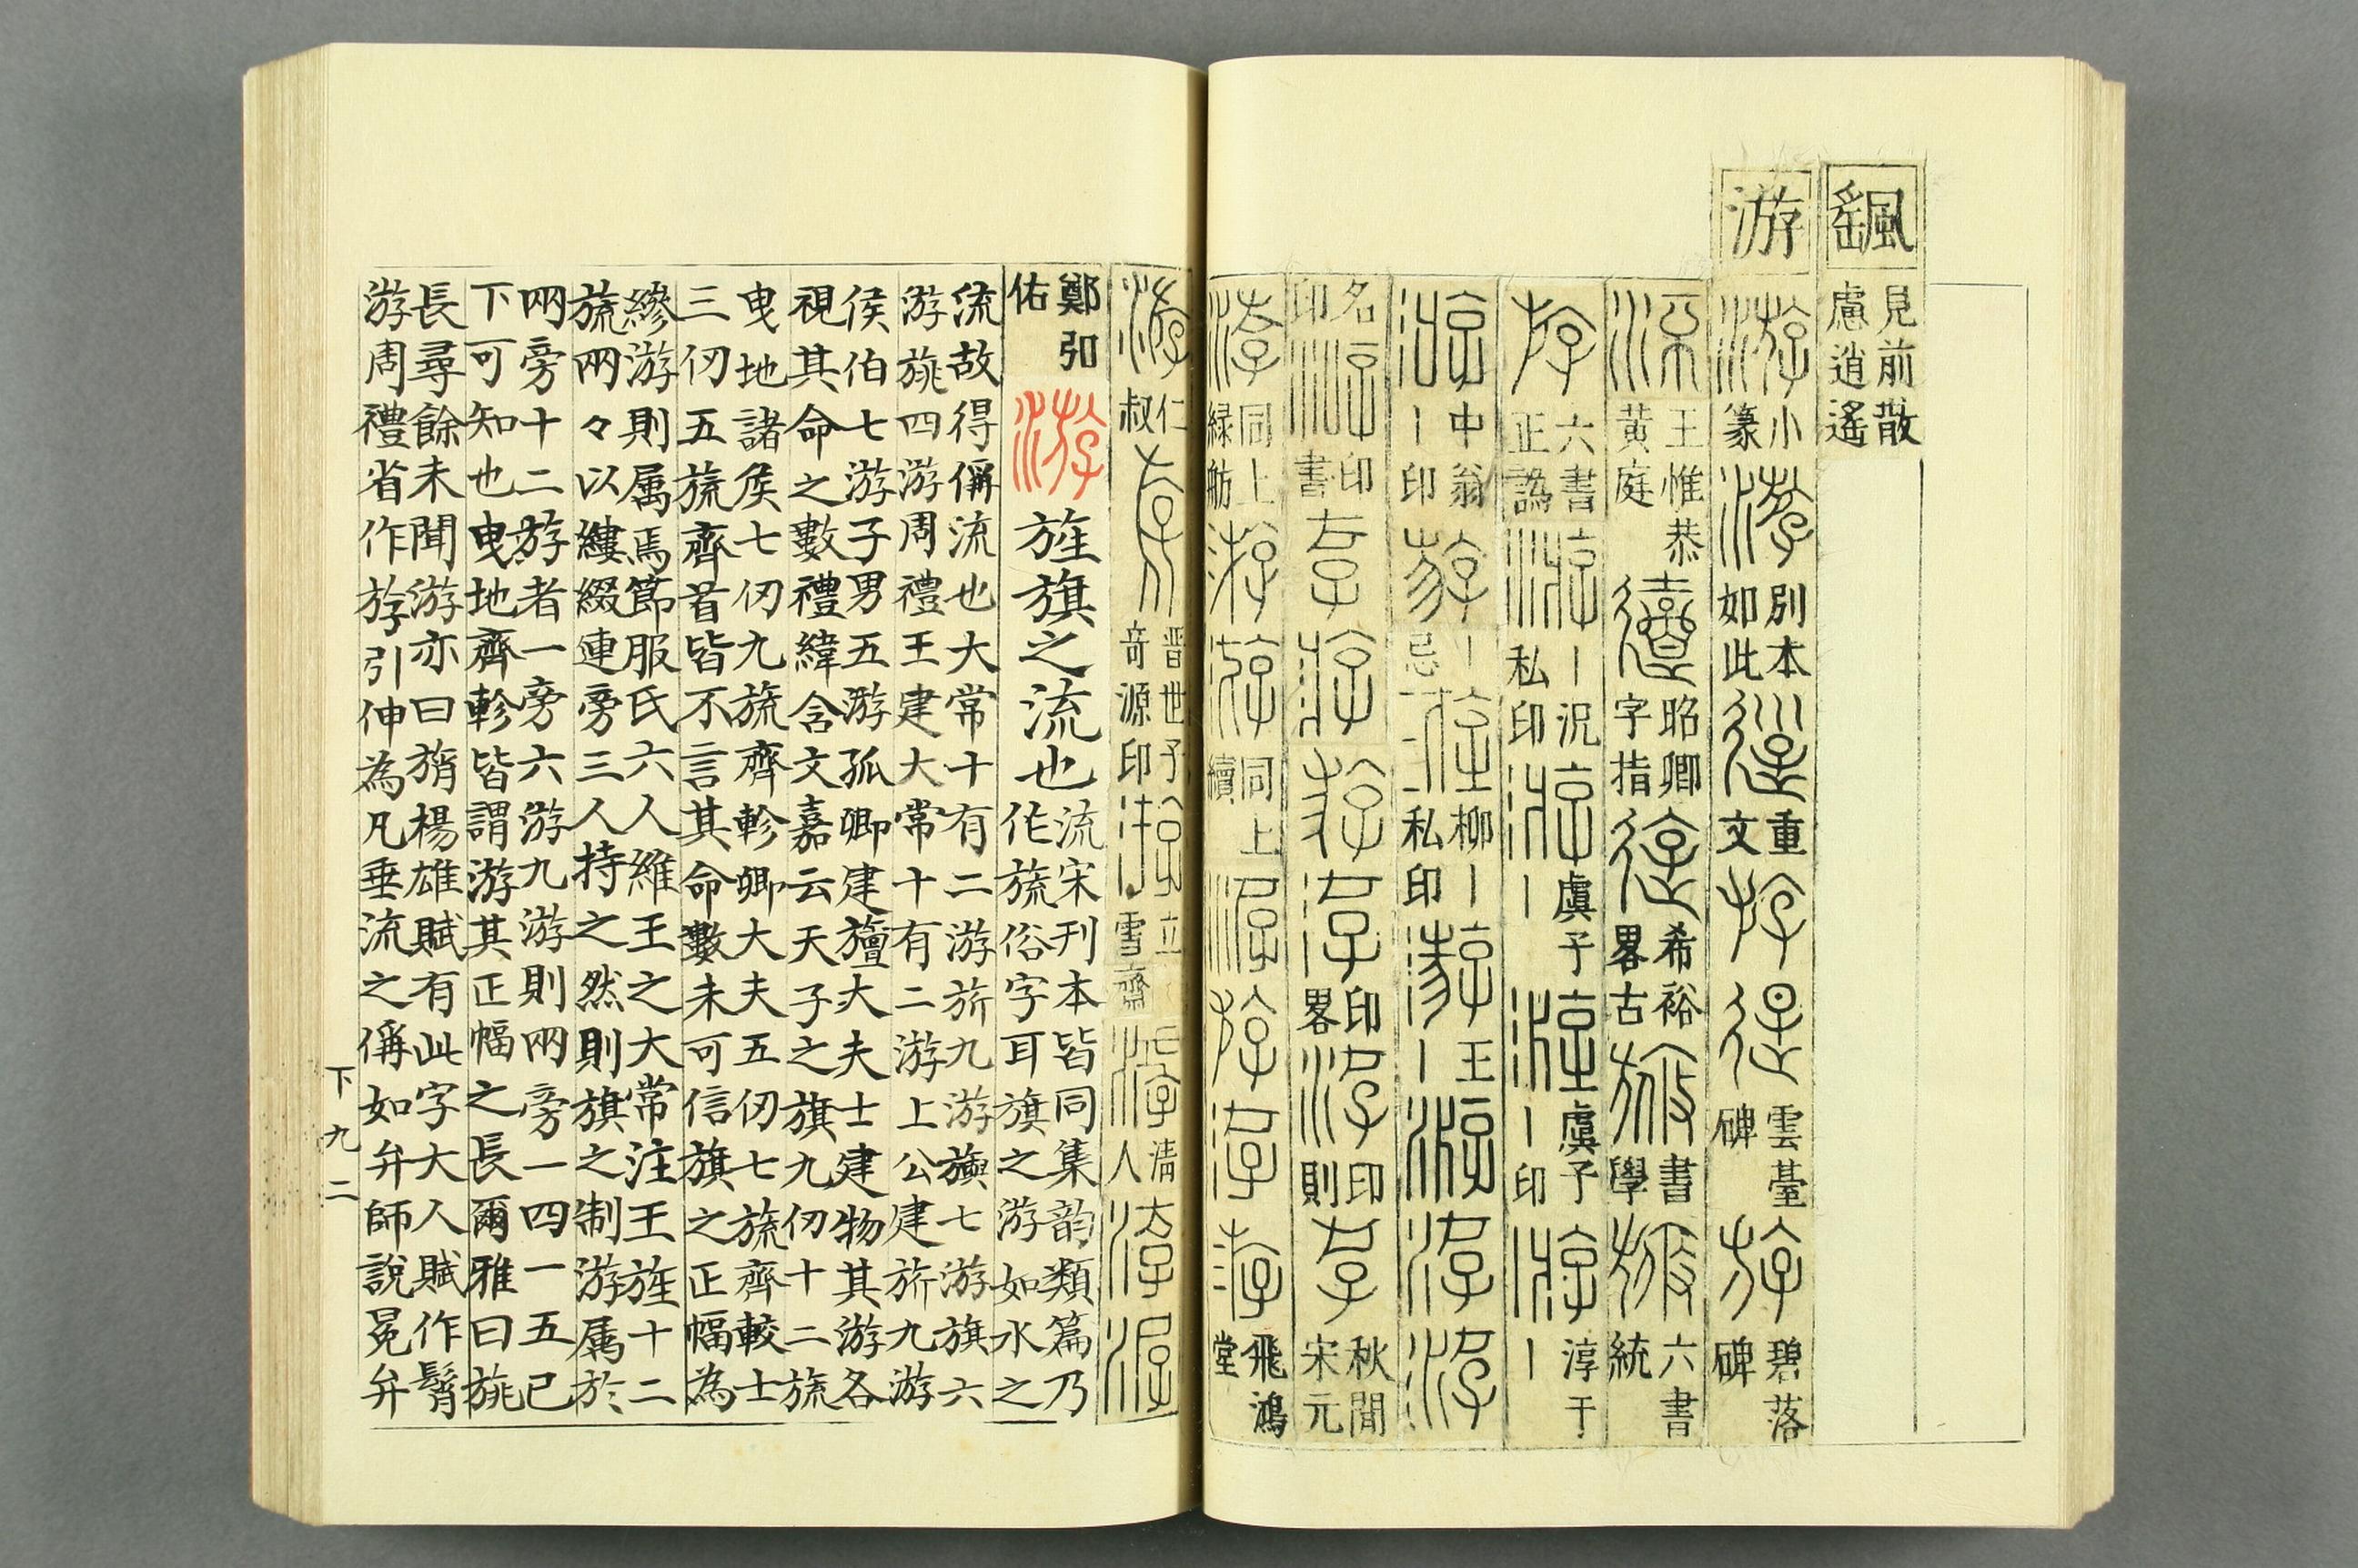 颻 見前散
慮逍遙
游 游 小篆 游 別本如此 重文 雲臺碑 碧落碑
王惟恭黃庭 昭卿字指 希裕畧古 書學 六書統
六書正譌 丨況私印 虞子丨 虞子丨印 淳于丨
中翁丨印 丨忌 柳丨私印 王丨
名印 印書 印畧 印則 秋閒宋元
同上綠舫 同上續 飛鴻堂
仁叔 晋世子奇源印 立雪齋 清人
鄭弘佑 游 旌旗之流也 流宋刊本皆同集韵類篇乃
作旒俗字耳旗之游如水之
流故得偁流也大常十有二游旂九游旟七游旗六
游旐四游周禮王建大常十有二游上公建旂九游
侯伯七游子男五游孤卿建旜大夫士建物其游各
視其命之數禮緯含文嘉云天子之旗九仞十二旒
曳地諸侯七仞九旒齊軫卿大夫五仞七旒齊較士
三仞五旒齊首皆不言其命數未可信旗之正幅為
縿游則属焉節服氏六人維王之大常注王旌十二
旒兩々以縷綴連旁三人持之然則旗之制游属於
兩旁十二游者一旁六游九游則兩旁一四一五已
下可知也曳地齊軫皆謂游其正幅之長爾雅曰旐
長尋餘未聞游亦曰旓楊雄賦有此字大人賦作髾
游周禮省作斿引伸為凡垂流之偁如弁師說冕弁
下九二